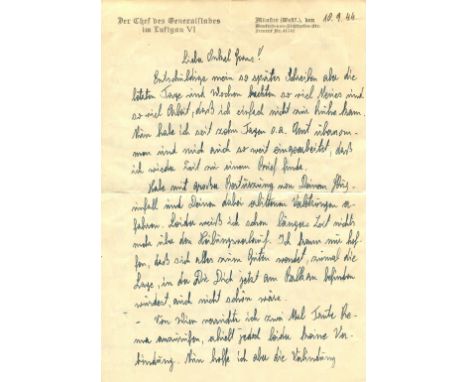 Der Chef des Generalstabes
im Luftgau VI
Münster (Westf.), den 10.9.44
Lieber Onkel Franz!
Entschuldige mein so spätes Schreiben aber die
letzten Tage und Wochen brachten so viel Neues und
so viel Arbeit, daß ich einfach nicht früher kam.
Nun habe ich seit zehn Tagen o.a. Amt übernom-
men und mich auch so weit eingearbeitet, daß
ich wieder Zeit zu einem Brief finde.
Habe mit großer Bestürzung von Deinem
unfall und Deinen dabei erlittenen Verletzungen er-
fahren. Leider weiß ich schon längere Zeit nichts
mehr über den Heilungsverlauf. Ich kann nur hof-
fen, daß sich alles zum Guten wendet, zumal die
Lage, in der Du Dich jetzt am Balkan befinden
würdest, auch nicht schön wäre.
- Von Wien versuchte ich zwei Mal Tante
anzurufen, erhielt jedoch leider keine Ver-
bindung. Nun hoffe ich aber die Verbindung